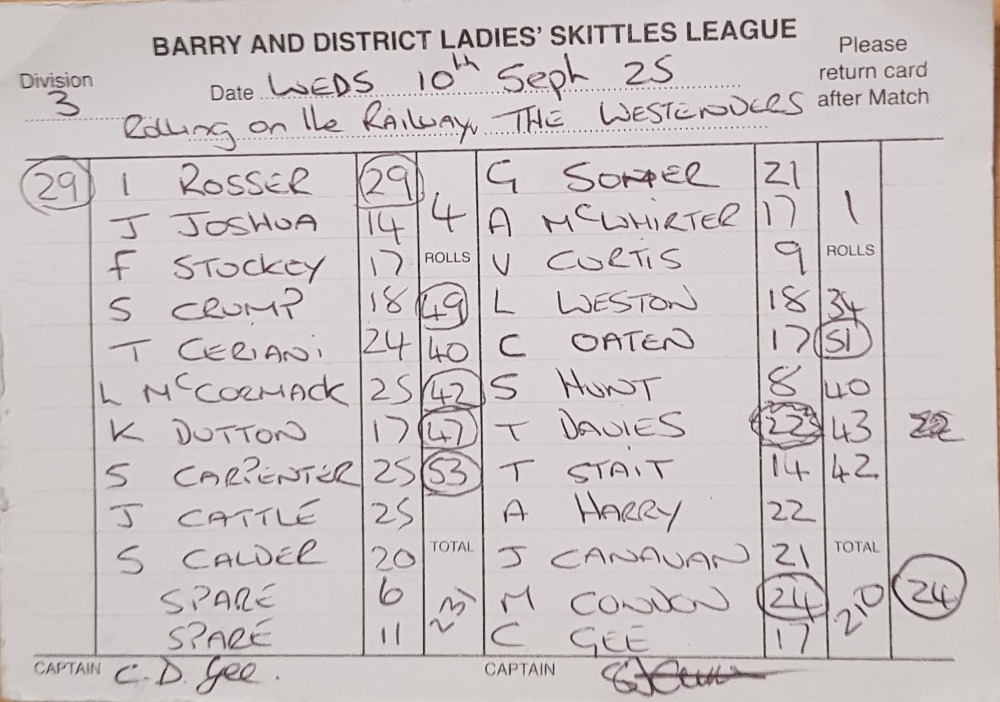 BARRY AND DISTRICT LADIES' SKITTLES LEAGUE
Please return card after Match
Division 3
Date WEDS 10th Seph 25
Rolling on the RAILWAY v THE WESTENDERS
29 I ROSSER 29 4 G SOMPER 21 1
J JOSHUA 14 A McWHIRTER 17
F STUCKEY 17 ROLLS V CURTIS 9 ROLLS
S CRUMP 18 49 L WESTON 18 34
T CERIANi 24 40 C OATEN 17 51
L McCORMACK 25 42 S HUNT 8 40
K DUTTON 17 47 T DAVIES 22 43
S CARPENTER 25 53 T STAiT 14 42
J CATTLE 25 A HARRY 22
S CALDER 20 TOTAL J CANAVAN 21 TOTAL
SPARE 6 231 M CONDON 24 210 24
SPARE 11 C GEE 17
CAPTAIN C. D. Gee. CAPTAIN